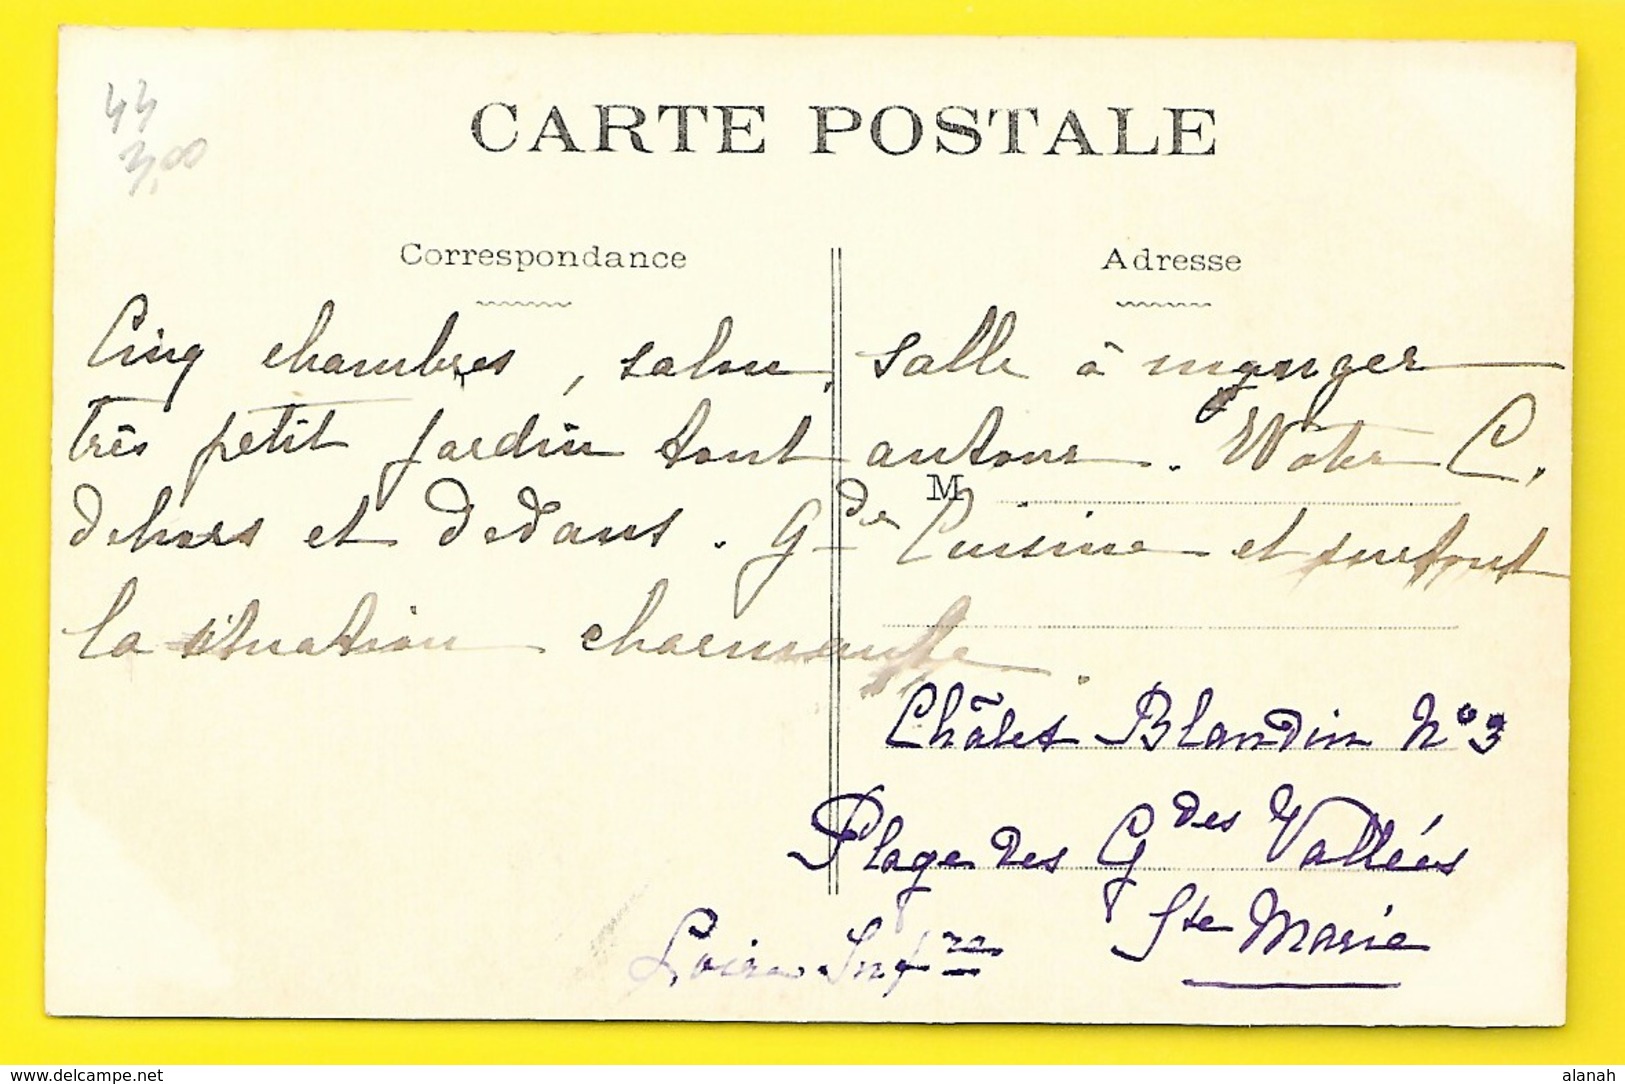 44
3,00
CARTE POSTALE
Correspondance
Adresse
Cinq chambres, salon, salle à manger
très petit jardin tout autour. Water C.
M
dehors et dedans. Gde Cuisine et surtout
la situation charmante.
Châlet Blandin No 3
Plage des Gdes Vallées
Ste Marie
Loire Infre
delcampe.net
alanah